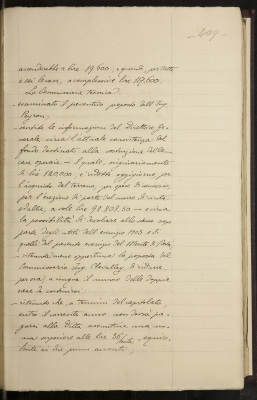 409
ascenderebbe a lire 19.600, e quindi, per tutte
e sei le case, a complessive lire 117.600.
La Commissione tecnica
- esaminato il preventivo proposto dall'Ing.
Peyron;
- sentite le informazioni del Direttore Ge-
nerale circa l'attuale consistenza del
fondo destinato alla costruzione delle
case operaie - il quale, originariamente
di lire 120.000 è ridotto oggigiorno, per
l'acquisto del terreno, per spese di
per l'erezione di parte del muro di cinta,
ed altre, a sole lire 92.807,50 - e circa
la possibilità di devolvere allo stesso scopo
parte degli utili dell'esercizio 1903 e di
quelli del prossimo esercizio del Monte di Pietà;
- ritenuta meno opportuna la proposta del
Commissario Ing. Chevalley di ridurre,
per ora, a cinque il numero delle doppie
case da costruire;
- ritenuto che, a termini del capitolato
entro il corrente anno non dovrà pa-
garsi alla Ditta assuntrice una som-
ma superiore alle lire 36/mila, equiva-
lente ai due primi acconti;